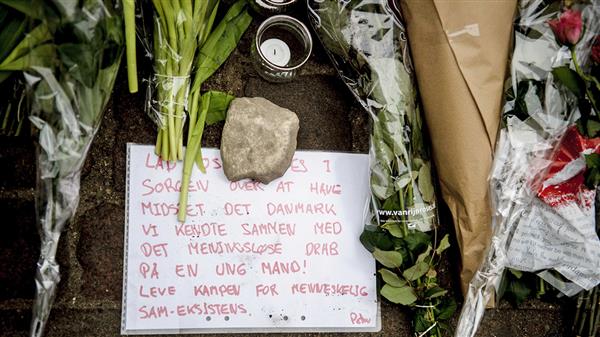 LAD OS
SORGEN OVER AT HAVE
MIDSTET DET DANMARK
VI KENDTE SAMMEN MED
DET MENINGSLØSE DRAB
PÅ EN UNG MAND!
LEVE KAMPEN FOR MENNESKELIG
SAM-EKSISTENS.
www.van